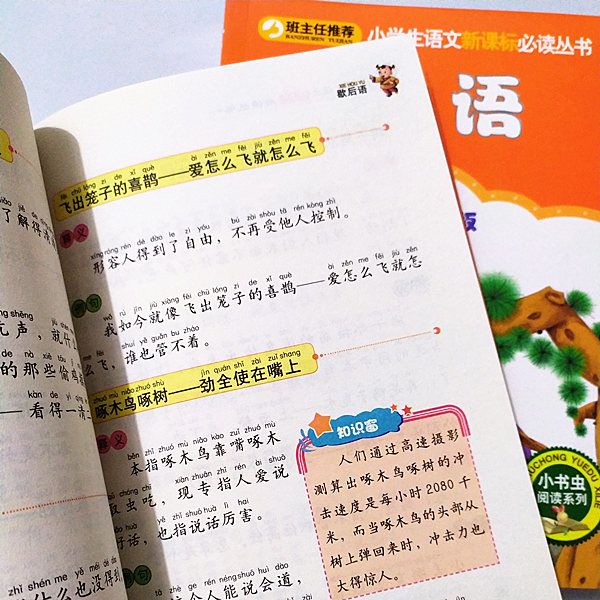 班主任推荐
BANZHUREN TUIJIAN
小学生语文新课标必读丛书
语
版
小书虫
阅读系列
XIE HOU YU
歇后语
fēi chū lóng zi de xǐ què ài zěn me fēi jiù zěn me fēi
飞出笼子的喜鹊——爱怎么飞就怎么飞
释义
xíng róng rén dé dào le zì yóu bú zài shòu tā rén kòng zhì
形容人得到了自由，不再受他人控制。
例句
wǒ rú jīn jiù xiàng fēi chū lóng zi de xǐ què ài zěn me fēi jiù zěn
我如今就像飞出笼子的喜鹊——爱怎么飞就怎
me fēi shuí yě guǎn bu zháo
么飞，谁也管不着。
zhuó mù niǎo zhuó shù jìn quán shǐ zài zuǐ shang
啄木鸟啄树——劲全使在嘴上
释义
běn zhǐ zhuó mù niǎo kào zuǐ zhuó mù
本指啄木鸟靠嘴啄木
取虫吃，现专指人爱说
好话，也指说话厉害。
例句
这个人能说会道，
知识窗
人们通过高速摄影
测算出啄木鸟啄树的冲
击速度是每小时2080千
米，而当啄木鸟的头部从
树上弹回来时，冲击力也
大得惊人。
了解得
声，就什
的那些偷鸡
——看得一清二
什么也没得到